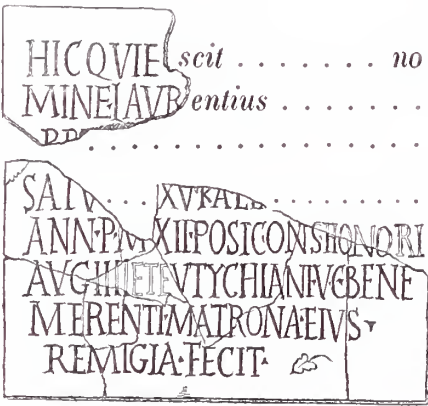 HICQVIEscit . . . . . . . . no
MINE LAVRentius . . . . . . .
PP . . . . . . . . . . . . . . . .
SATV . . . XV KALE . . . . . . . . .
ANN·P·M·XII·POST·CONS HONORI
AVG IIII ET EVTYCHIANI·VC·BENE
MERENTI·MATRONA·EIVS
REMIGIA·FECIT·